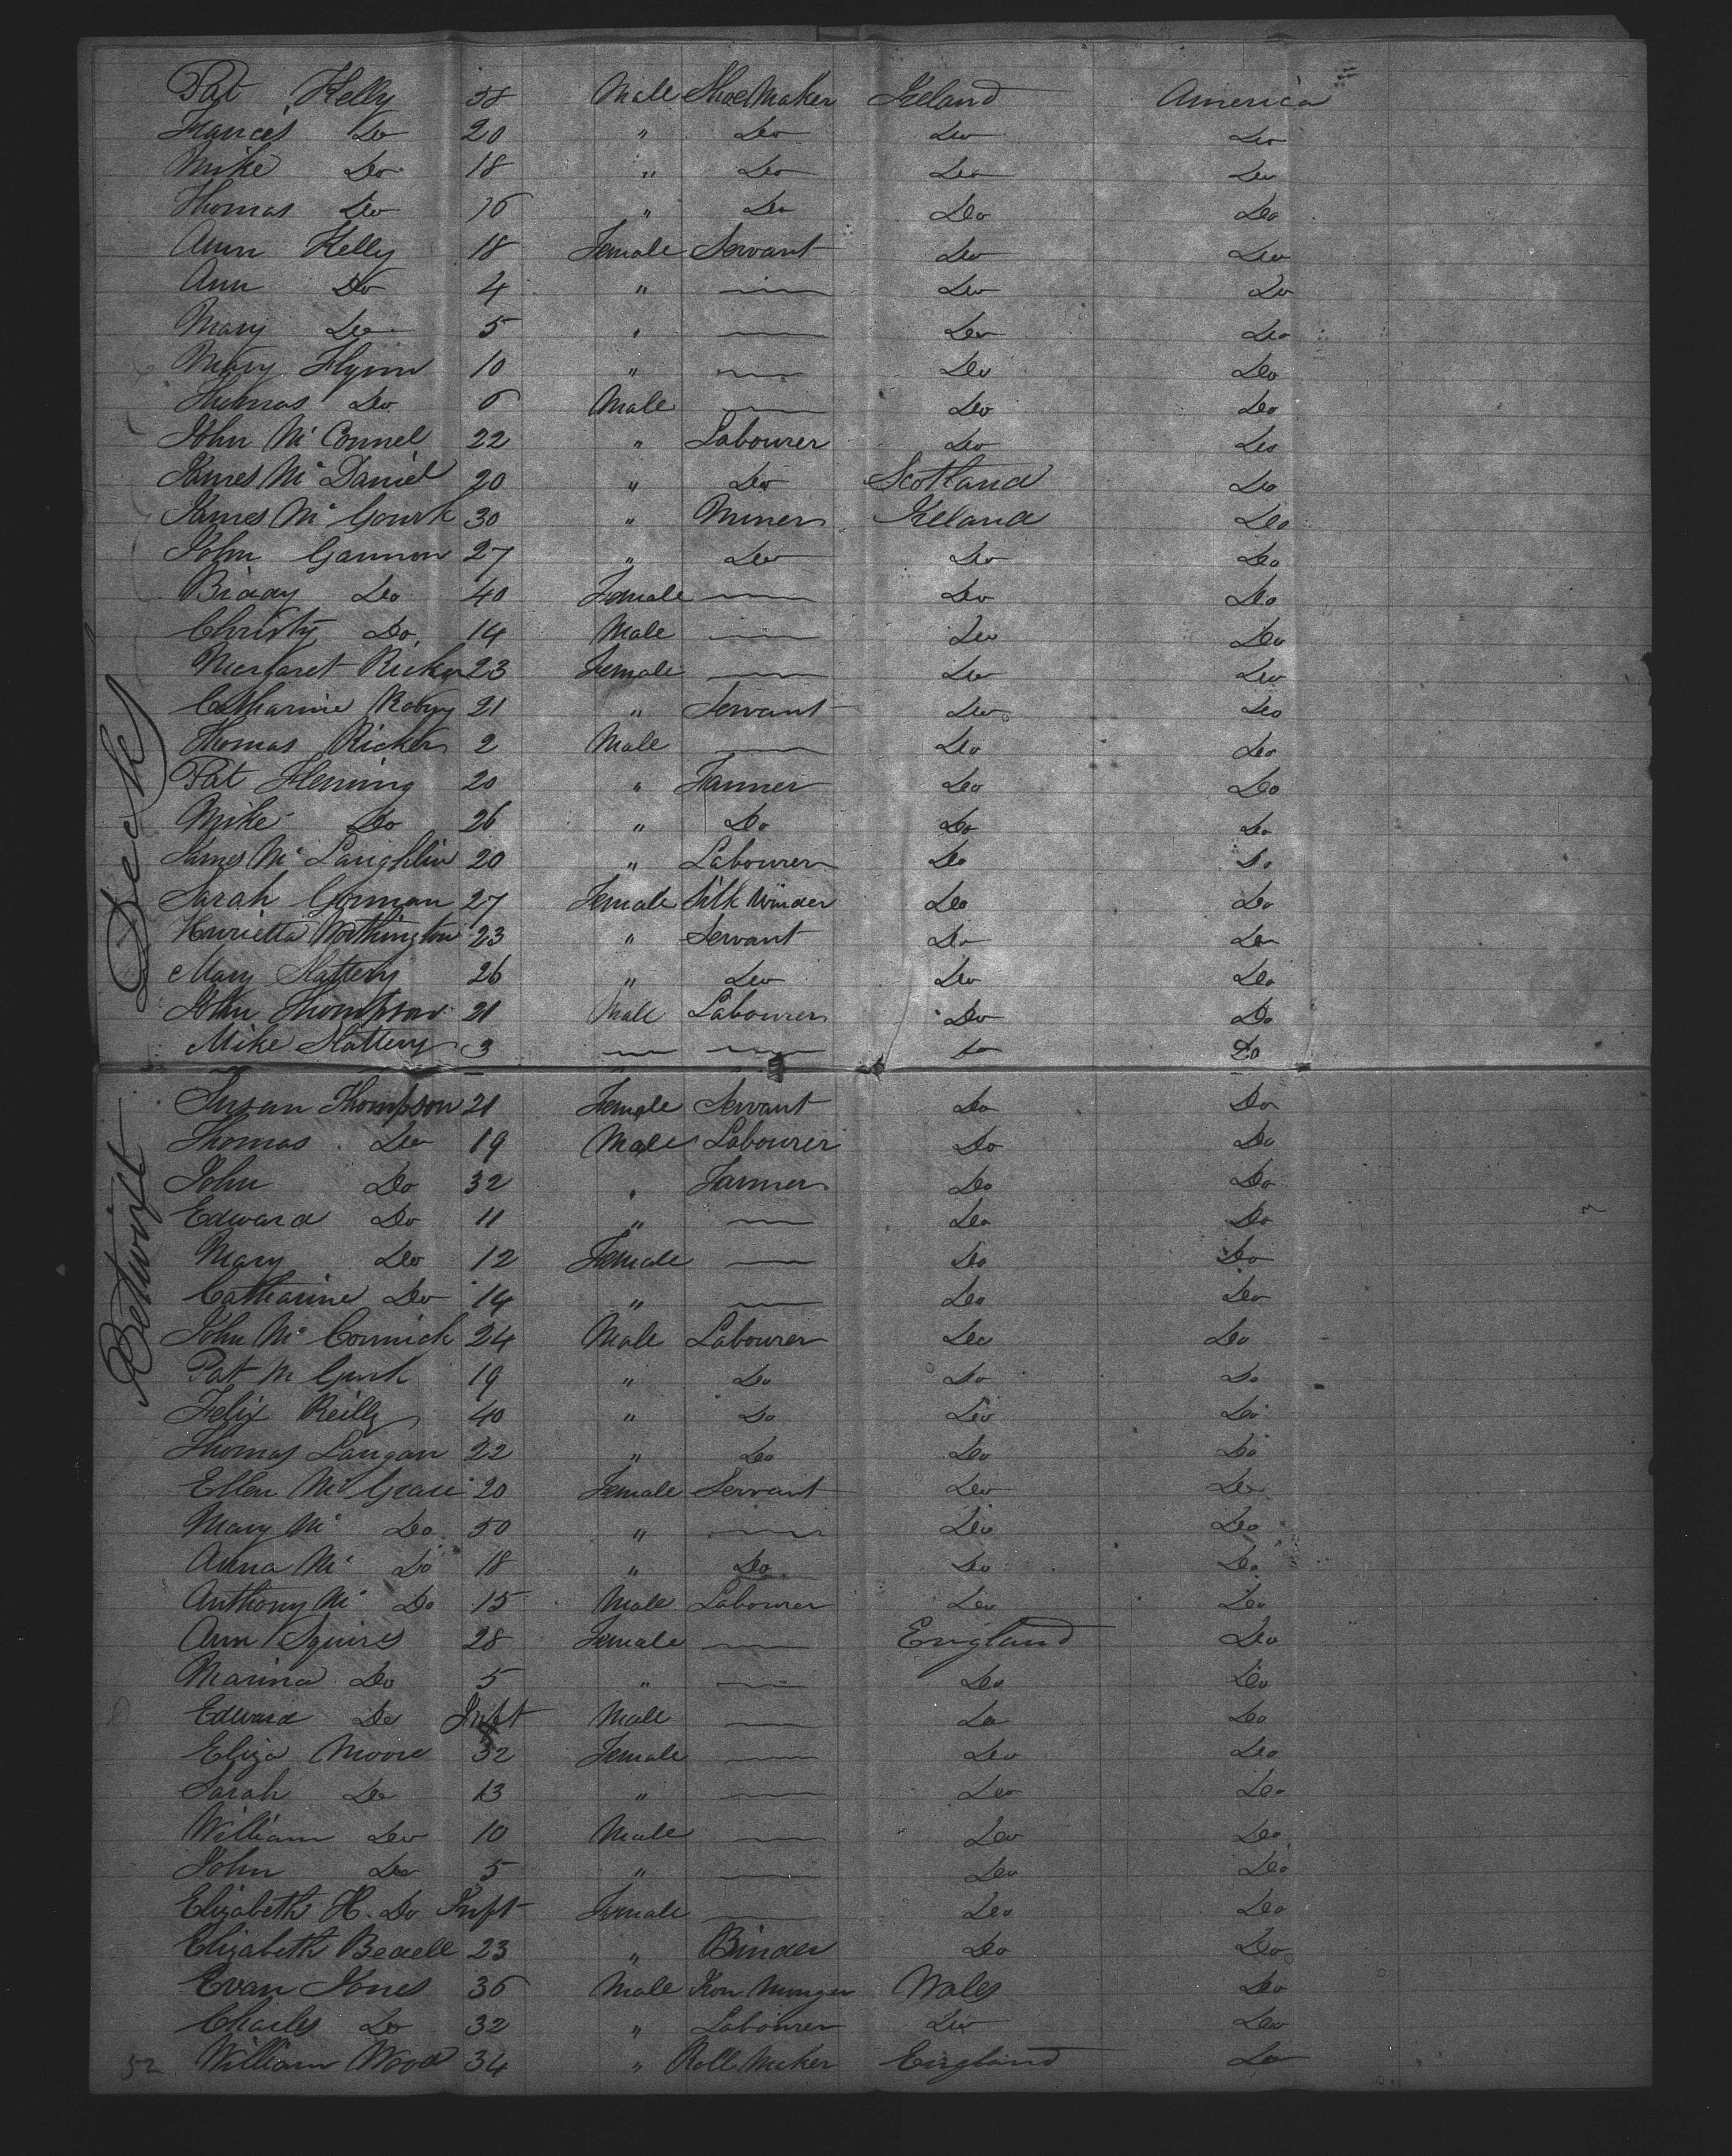 Pat Kelly 58 Male Shoe Maker Ireland America
Frances Do 20 " Do Do Do
Mike Do 18 " Do Do Do
Thomas Do 16 " Do Do Do
Ann Kelly 18 Female Servant Do Do
Ann Do 4 " — Do Do
Mary Do 5 " — Do Do
Mary Flynn 10 " — Do Do
Thomas Do 6 Male — Do Do
John Mc Connel 22 " Labourer Do Do
James Mc Daniel 20 " Do Scotland Do
James Mc Gourk 30 " Miner Ireland Do
John Gannon 27 " Do Do Do
Biddy Do 40 Female — Do Do
Christy Do 14 Male — Do Do
Margaret Ricker 23 Female — Do Do
Catharine 21 " Servant Do Do
Thomas Ricker 2 Male — Do Do
Pat Fleming 20 " Farmer Do Do
Mike Do 26 " Do Do Do
James Mc Laughlin 20 " Labourer Do Do
Sarah Gorman 27 Female Silk Winder Do Do
Henrietta Worthington 23 " Servant Do Do
Mary Slattery 26 " Do Do Do
John Thompson 21 Male Labourer Do Do
Mike Slattery 3 — — Do Do
Susan Thompson 21 Female Servant Do Do
Thomas Do 19 Male Labourer Do Do
John Do 32 " Farmer Do Do
Edward Do 11 " — Do Do
Mary Do 12 Female — Do Do
Catharine Do 14 " — Do Do
John Mc Cormick 24 Male Labourer Do Do
Pat Mc Gurk 19 " Do Do Do
Felix Reilly 40 " Do Do Do
Thomas Langan 22 " Do Do Do
Ellen Mc Grace 20 Female Servant Do Do
Mary Mc Do 50 " — Do Do
Anna Mc Do 18 " Do Do Do
Anthony Mc Do 15 Male Labourer Do Do
Ann Squires 28 Female — England Do
Marina Do 5 " — Do Do
Edward Do Inft Male — Do Do
Eliza Moore 32 Female — Do Do
Sarah Do 13 " — Do Do
William Do 10 Male — Do Do
John Do 5 " — Do Do
Elizabeth H. Do Inft Female — Do Do
Elizabeth Bedell 23 " Binder Do Do
Evan Jones 36 Male Iron Munger Wales Do
Charles Do 32 " Labourer Do Do
52 William Wood 34 " Roll Maker England Do
Betwixt Decks